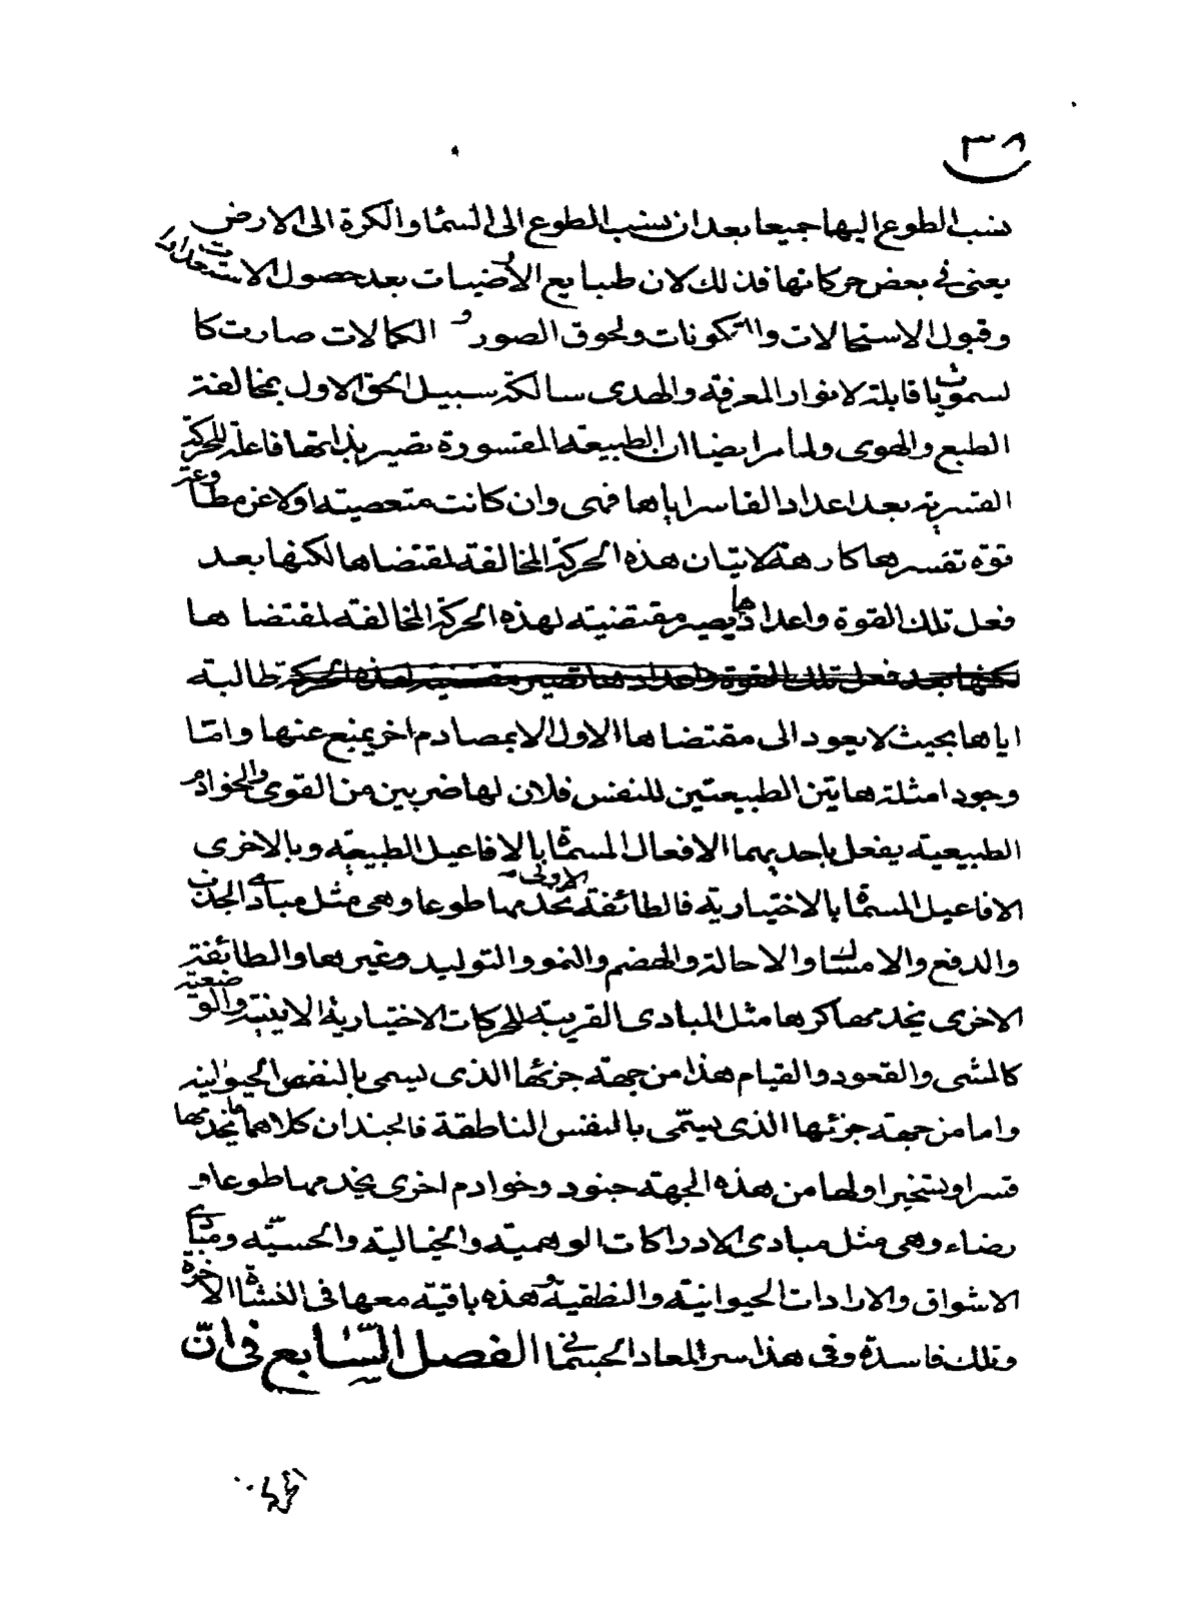 ٣٨
ينسب الطوع اليها جميعا بعد ان ينسب الطوع الى السماء والكرة الى الارض
يعنى فى بعض حركاتها فذلك لان طبايع الأرضيات بعد حصول الاستعدادات
وقبول الاستحالات والتكونات ولحوق الصور و الكمالات صارت كا
لسموات قابلة لانوار المعرفة والهدى سالكة سبيل الحق الاول بمخالفة
الطبع والهوى ولما مر ايضا ان الطبيعة المقسورة تصير بذاتها فاعلة للحركة
القسرية بعد اعداد القاسر اياها فهى وان كانت متعصية اولا عن مطاوعة
قوة تقسرها كارهة لاتيان هذه الحركة المخالفة لمقتضاها لكنها بعد
فعل تلك القوة واعدادها يصير مقتضية لهذه الحركة المخالفة لمقتضا ها
لكنها بعد فعل تلك القوة واعدادها تصير مقتضية لهذه الحركة طالبة
اياها بحيث لا يعود الى مقتضاها الاول الا بمصادم اخر يمنع عنها واما
وجود امثلة هاتين الطبيعتين للنفس فلان لها ضربين من القوى والخوادم
الطبيعية يفعل باحديهما الافعال المسماة بالافاعيل الطبيعية وبالاخرى
الافاعيل المسماة بالاختيارية فالطائفة الاولى تخدمها طوعا وهى مثل مبادى الجذب
والدفع والامساك والاحالة والهضم والنمو والتوليد وغيرها والطائفة
الاخرى يخدمها كرها مثل المبادى القريبة للحركات الاختيارية الاينية والوضعية
كالمشى والقعود والقيام هذا من جهة جزئها الذى يسمى بالنفس الحيوانية
واما من جهة جزئها الذى يسمّى بالنفس الناطقة فالجندان كلاهما يخدمها
قسرا وتسخيرا ولها من هذه الجهة جنود وخوادم اخرى يخدمها طوعا و
رضاء وهى مثل مبادى الادراكات الوهمية والخيالية والحسيّة ومبادى
الاشواق والارادات الحيوانية والنطقية وهذه باقية معها فى النشاة الاخرة
وتلك فاسدة وفى هذا سر المعاد الجسمانى الفصل السّابع فى انّ